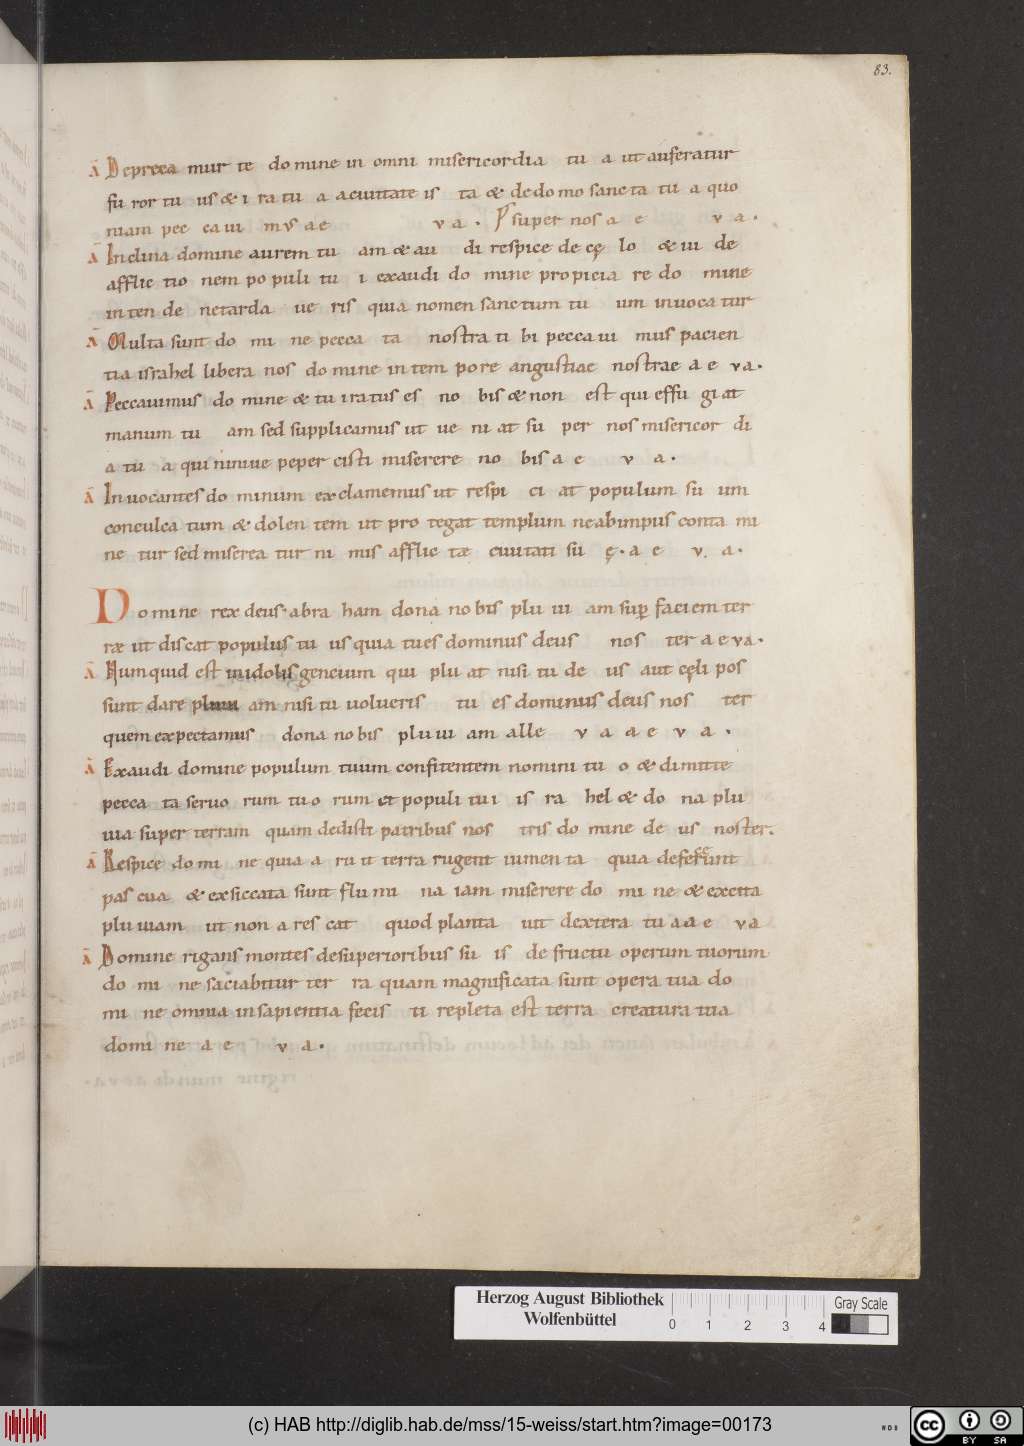 83.
Ā Depreca mur te do mine in omni misericordia tu a ut auferatur
fu ror tu us & i ra tu a a ciuitate is ta & de do mo sanc ta tu a quo
niam pec ca ui mus a e v a. Ps super nos a e v a.
Ā Inclina domine aurem tu am & au di respice de cę lo & ui de
afflic tio nem po puli tu i exaudi do mine propicia re do mine
in ten de ne tarda ue ris quia nomen sanctum tu um inuoca tur
Ā Multa sunt do mi ne pecca ta nostra ti bi pecca ui mus pacien
tia israhel libera nos do mine in tem pore angustiae nostrae a e va.
Ā Peccauimus do mine & tu iratus es no bis & non est qui effu gi at
manum tu am sed supplicamus ut ue ni at su per nos misericor di
a tu a qui niniue peper cisti miserere no bis a e v a.
Ā Inuocantes do minum exclamemus ut respi ci at populum su um
conculca tum & dolen tem ut pro tegat templum ne ab impus conta mi
ne tur sed miserea tur ni mis afflic tae ciuitati su ę. a e v a.
Do mine rex deus. abra ham dona no bis plu ui am sup faciem ter
rae ut discat populus tu us quia tu es dominus deus nos ter a e va.
Ā Numquid est in idolis gencium qui plu at nisi tu de us aut cęli pos
sunt dare pluui am nisi tu uolueris tu es dominus deus nos ter
quem expectamus dona no bis plu ui am alle v a a e v a.
Ā Exaudi domine populum tuum confitentem nomini tu o & dimitte
pecca ta seruo rum tuo rum et populi tu i is ra hel & do na plu
uia super terram quam dedisti patribus nos tris do mine de us noster.
Ā Respice do mi ne quia a ru it terra rugent iumen ta quia defecerunt
pas cua & exsiccata sunt flu mi na iam miserere do mi ne & excita
plu uiam ut non a res cat quod planta uit dextera tu a a e va
Ā Domine rigans montes de superioribus su is de fructu operum tuorum
do mi ne saciabitur ter ra quam magnificata sunt opera tua do
mi ne omnia in sapientia fecis ti repleta est terra creatura tua
domi ne a e v a.
Herzog August Bibliothek
Wolfenbüttel
0 1 2 3 4
Gray Scale
(c) HAB http://diglib.hab.de/mss/15-weiss/start.htm?image=00173
cc BY SA